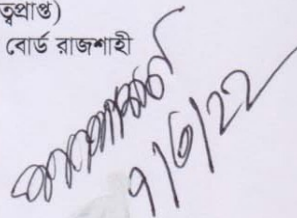 ত্বপ্রাপ্ত)
বোর্ড রাজশাহী
৭/৬/২২